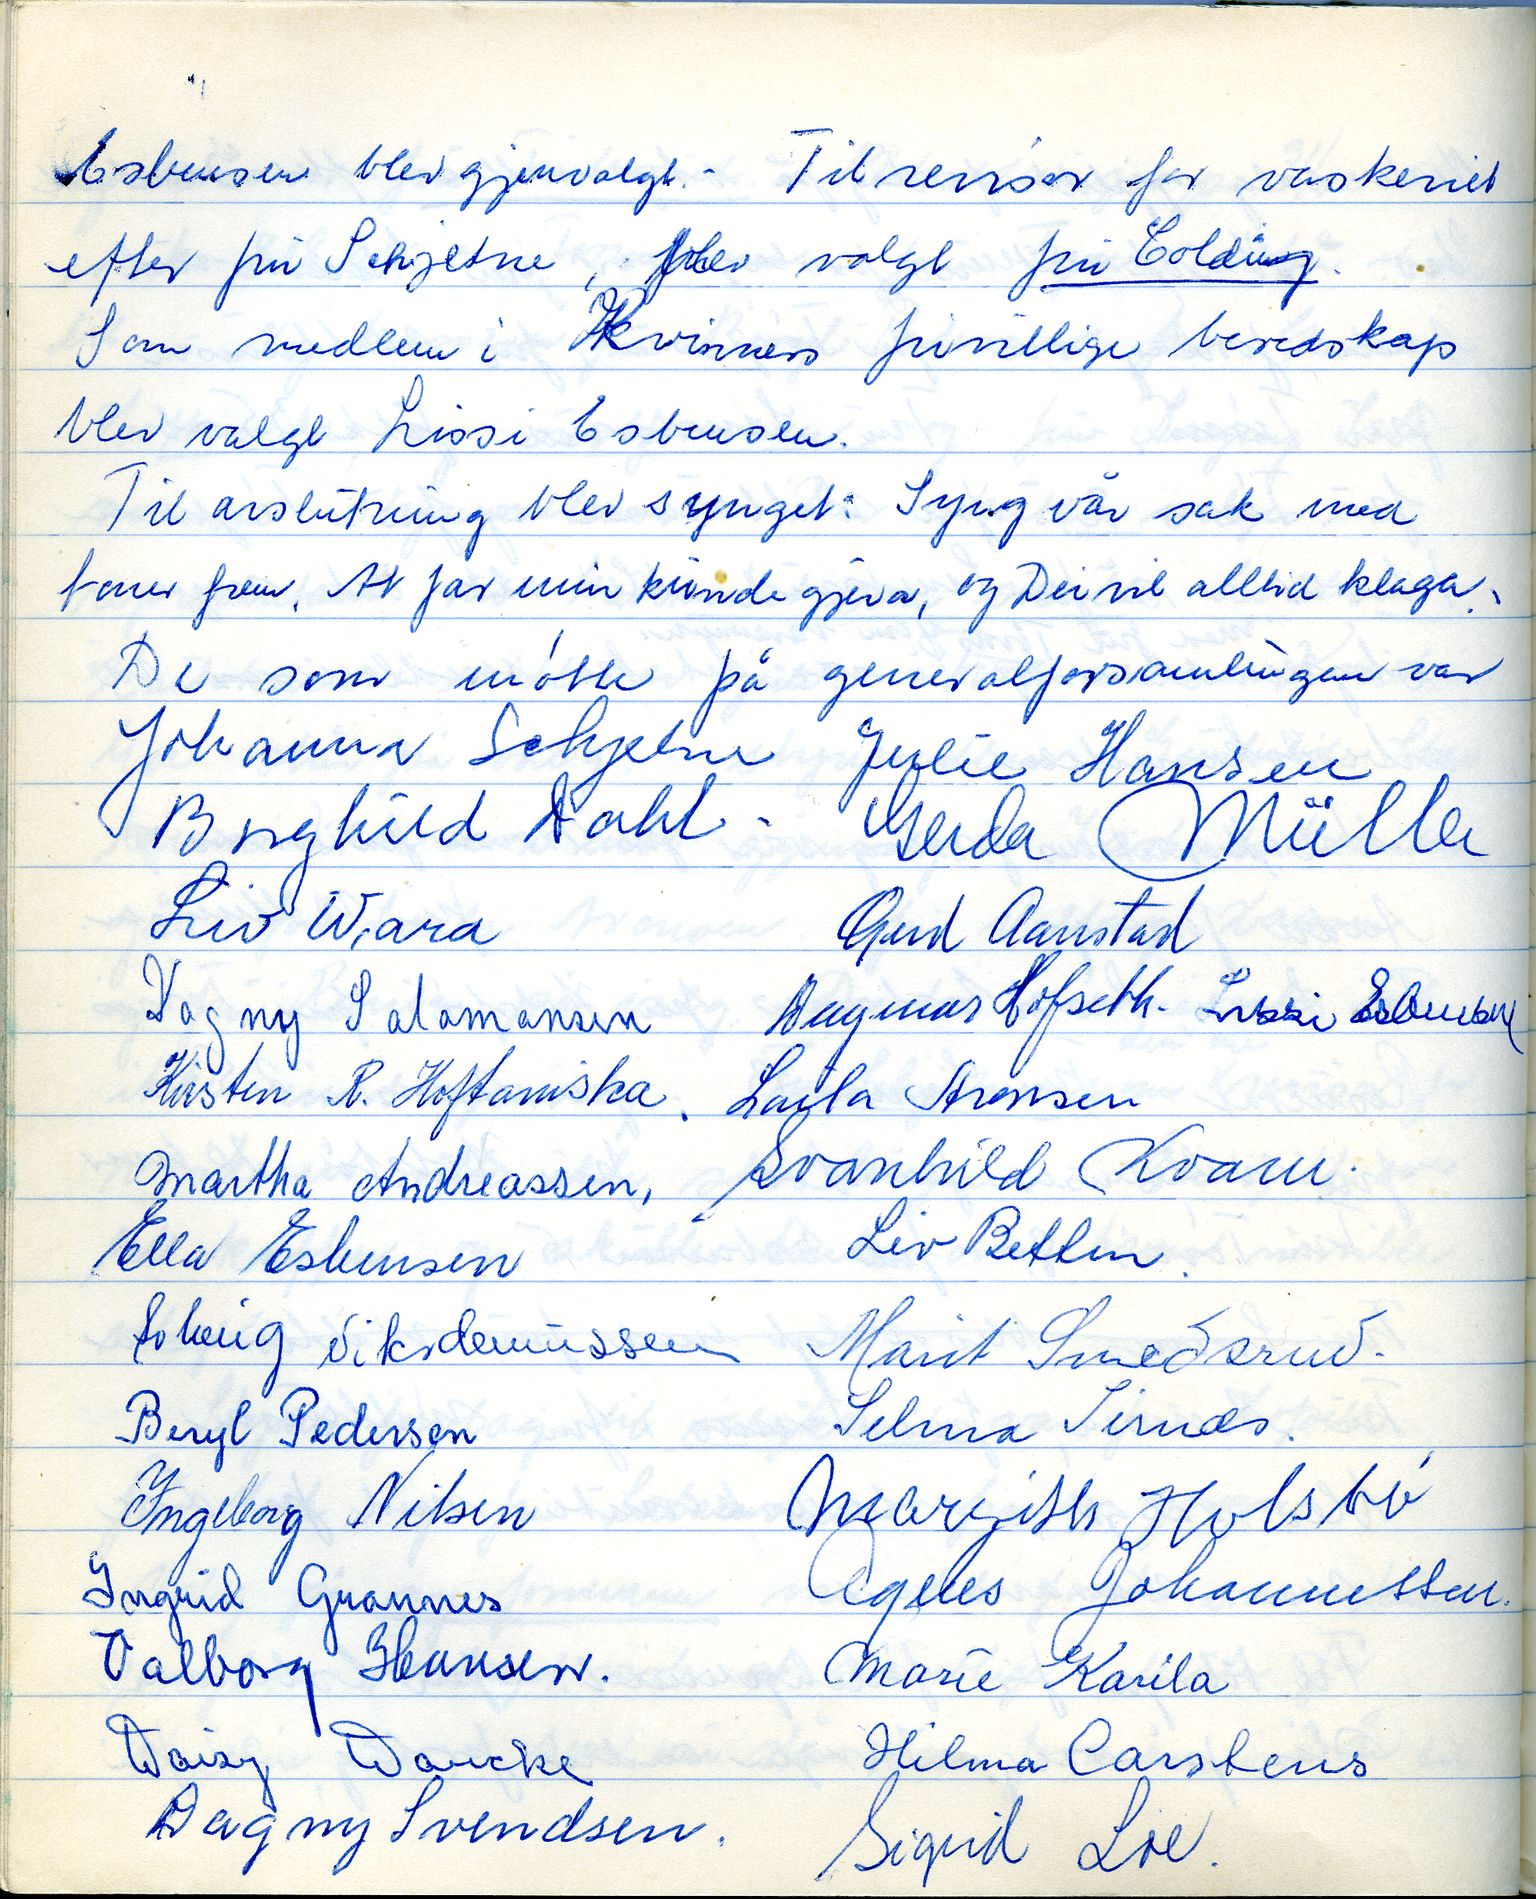 Esbensen blev gjenvalgt. - Til revisor for vaskeriet
efter fru Schjetne, blev valgt fru Colding.
Som medlem i Kvinners frivillige beredskap
blev valgt Lissi Esbensen.
Til avslutning blev synget: Syng vår sak med
toner frem. At far min kunde gjera, og Dei vil alltid klaga.
De som møtte på generalforsamlingen var
Johanna Schjetne Julie Hansen
Borghild Dahl. Gerda Müller
Liv Wara Gerd Aanstad
Dagny Salamonsen Dagmar Hofseth. Lissi Esbensen
Kirsten R. Hoftaniska. Laila Aronsen
Martha Andreassen, Svanhild Kvam.
Ella Esbensen Liv Betten.
Solveig Marit Smedsrud.
Beryl Pedersen Selma Sirnæs.
Ingeborg Nilsen Margith Holsbø
Ingrid Grannes Agnes Johannessen.
Valborg Hansen. Marie Karila
Daisy Wancke Hilma Carstens
Dagny Svendsen. Sigrid Loe.